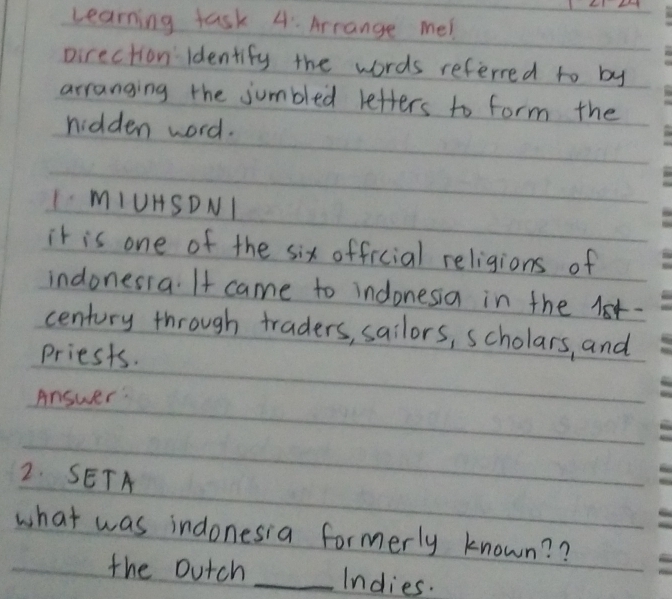 1-21-24
Learning task 4: Arrange me!
Direction: Identify the words referred to by
arranging the jumbled letters to form the
hidden word.
1. MIUHSDNI
it is one of the six official religions of
indonesia. It came to indonesia in the 1st-
century through traders, sailors, scholars, and
priests.
Answer:
2. SETA
what was indonesia formerly known??
the Dutch ____ Indies.